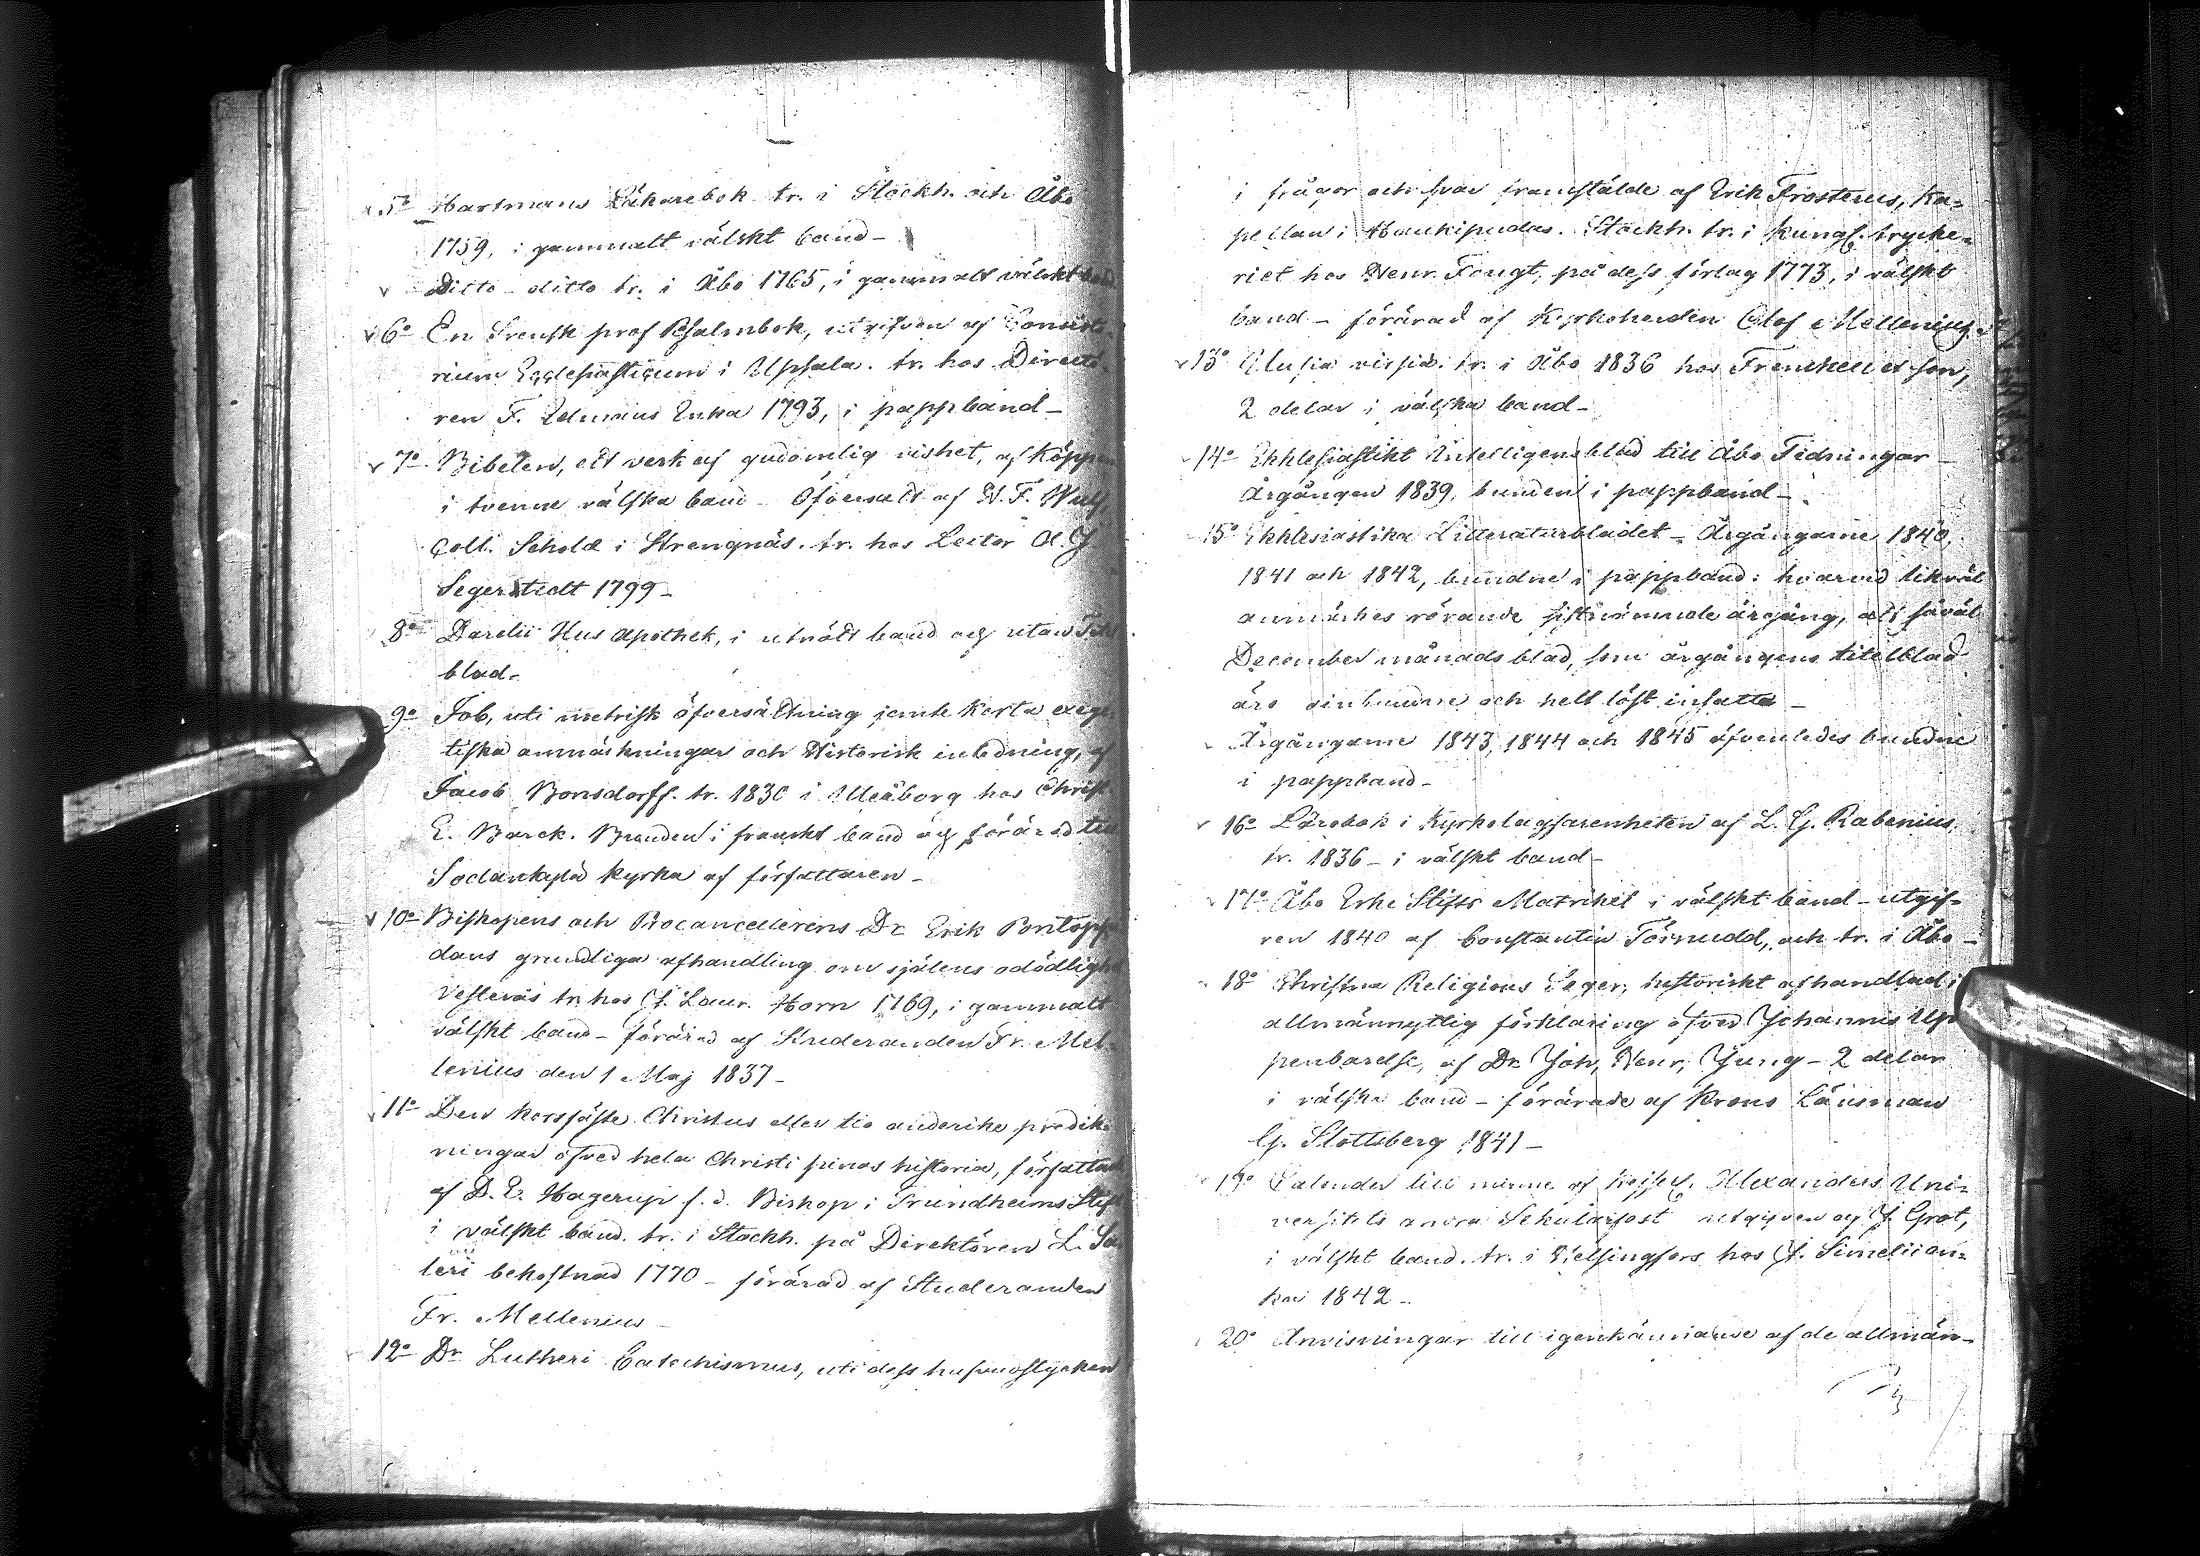 5o Hartmans Läkarebok tr. i Stockh. och Åbo
1759, i gammalt välskt band -
Ditto ditto tr. i Åbo 1765, i gammalt välskt band
6o En Svensk prof Psalmbok, utgifven af Consisto
rium Ecclesiasticum i Upsala. tr. hos Directö
ren F. Edmans Enka 1793, i pappband -
7o Bibelen, ett verk af gudomlig vishet, af Köppen
i tvenne välska band - Öfversatt af N. F.
Coll. Schol. i Strengnäs. tr. hos Lector A. J.
Segerstedt 1799 -
8o Darelii Hus Apothek, i utnött band och utan
blad.
9o Job, uti metrisk öfversättning jemte korta exege
tiska anmärkningar och Historisk inledning, af
Jacob Bonsdorff. tr. 1830 i Uleåborg hos Christ
E. Barck. Bunden i franskt band och förärad till
Sodankylä kyrka af författaren -
10o Biskopens och Procancellerens Dr Erik Pontopp
dans grundliga afhandling om själens odödlighet
Vesterås tr. hos J. Laur. Horn 1769, i gammalt
välskt band - förärad af Studeranden Fr. Mel
lenius den 1 Maj 1837 -
11o Den korsfäste Christus eller tio anderike predik
ningar öfver hela Christi pinos historia, författade
af D. E. Hagerup f. d. Biskop i Trundheims Stift
i välskt band. tr. i Stockh. på Direktören L. Sal
terii bekostnad 1770 - förärad af Studeranden
Fr. Mellenius -
12o Dr Lutheri Catechismus, uti dess hufvudstycken
i frågor och svar framstälde af Erik Frosterus, Ka=
pellan i Haukipudas. Stockh. tr. i Kungl. trycke=
riet hos Henr. Fougt, på dess förlag 1773, i välskt
band - förärad af Kyrkoherden Olof Mellenius
13o Uusia virsiä. tr. i Åbo 1836 hos Frenckell et son,
2 delar i välska band -
14o Ekklesiastikt Intelligensblad till Åbo Tidningar
Årgången 1839, bunden i pappband -
15o Ekklesiastika Litteraturbladet - Årgångarne 1840,
1841 och 1842, bundne i pappband: hvarvid likväl
anmärkes rörande sistnämnde årgång, att såväl
December månads blad, som årgångens titelblad
äro oinbundne och helt löst insatte -
Årgångarne 1843, 1844 och 1845 äfvenledes bundne
i pappband -
16o Lärobok i Kyrkolagfarenheten af L. G. Rabenius,
tr. 1836 - i välskt band -
17o Åbo Erke Stifts Matrikel i välskt band - utgif=
ven 1840 af Constantin Törnudd, och tr. i Åbo -
18o Christna Religions Seger, historiskt afhandlad i
allmännyttig förklaring öfver Johannis Up
penbarelse, af Dr Joh, Henr, Jung - 2 delar
i välska band - förärade af Krono Länsman
G. Slottsberg 1841 -
19o Calender till minne af Kejserl. Alexanders Uni=
versitets andra Sekularfest utgifven af J. Grot,
i välskt band. tr. i Helsingfors hos J. Simelii en=
ka 1842 -
20o Anvisningar till igenkännande af de allmän-